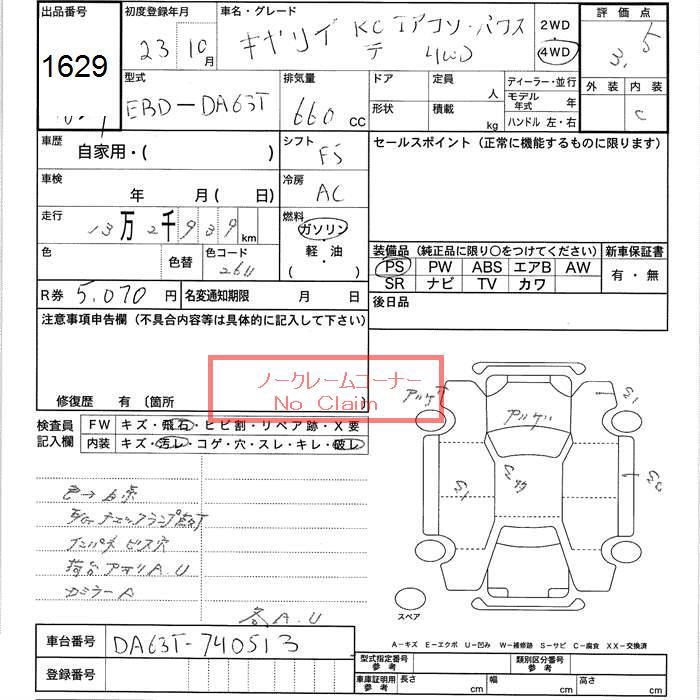 出品番号 初度登録年月 車名・グレード 2WD 評価点
1629 23 10月 キャリイ KC エアコン・パワステ 4WD 4WD 3.5
外装 内装
C
型式 排気量 ドア 定員 人 ディーラー・並行
EBD-DA63T 660 CC 形状 積載 kg モデル年式 年
ハンドル 左・右
車歴 自家用・( ) シフト F5 セールスポイント (正常に機能するものに限ります)
車検 年 月( 日) 冷房 AC
走行 13万2千939km 燃料 ガソリン・軽・油 ( )
色 色替 色コード 26U
装備品 (純正品に限り○をつけてください) 新車保証書
PS PW ABS エアB AW 有・無
SR ナビ TV カワ
R券 5,070円 名変通知期限 月 日 後日品
注意事項申告欄 (不具合内容等は具体的に記入して下さい)
ノークレームコーナー
No Claim
修復歴 有 〔箇所 〕
検査員記入欄 FW キズ・飛石・ヒビ割・リペア跡・X要
内装 キズ・汚レ・コゲ・穴・スレ・キレ・破レ
色→白系
チェックランプ点灯
インパネ ビス穴
荷台アオリA.U
DミラーA
各A.U
アルゲ
スペア
A-キズ E-エクボ U-凹み W-補修跡 S-サビ C-腐食 XX-交換済
車台番号 DA63T-740513 型式指定番号 参考 類別区分番号 参考
登録番号 車庫証明用 参考 長さ cm 幅 cm 高さ cm